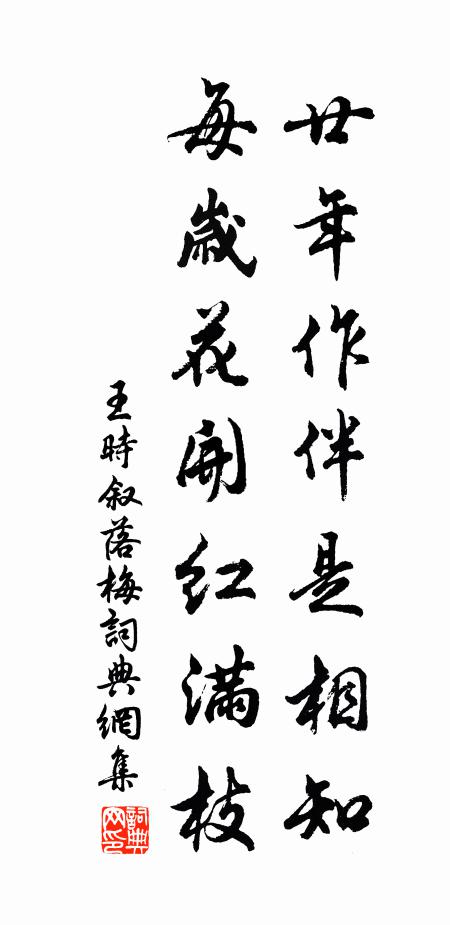 廿年作伴是相知
每歲花開紅滿枝
王時叙落梅詞典網集
詞典
网印